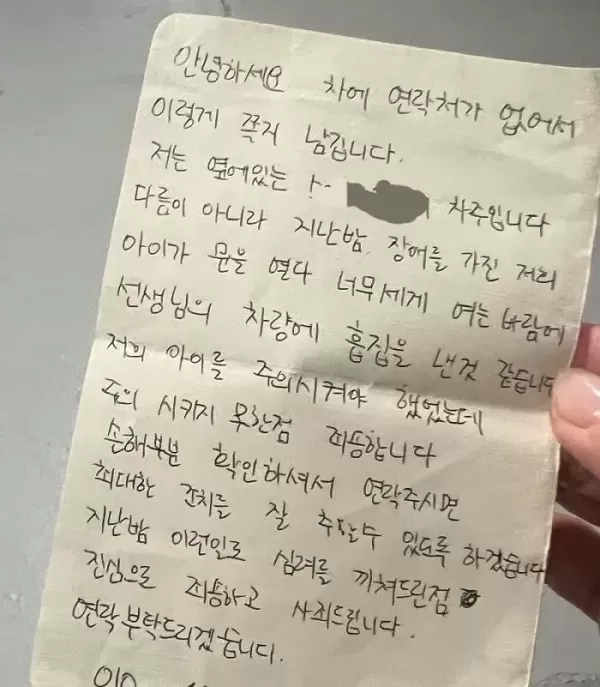 안녕하세요 차에 연락처가 없어서
이렇게 쪽지 남깁니다.
저는 옆에있는 차주입니다
다름이 아니라 지난밤, 장애를 가진 저희
아이가 문을 열다 너무세게 여는 바람에
선생님의 차량에 흡집을 낸것 같습니다
저희 아이를 주의시켜야 했었는데
주의 시키지 못한점 죄송합니다
손해부분 확인하셔서 연락주시면
최대한 조치를 잘 취할수 있도록 하겠습니다
지난밤 이런일로 심려를 끼쳐드린점
진심으로 죄송하고 사죄드립니다.
연락부탁드리겠습니다.
010